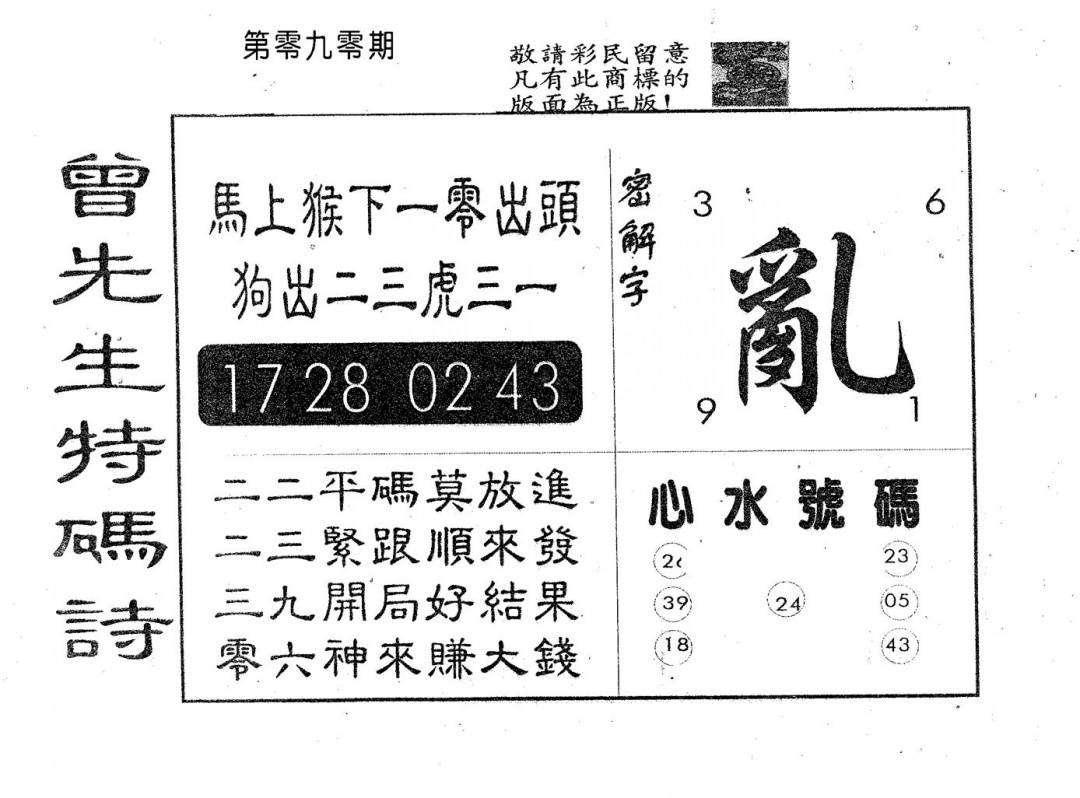 第零九零期
敬請彩民留意
凡有此商標的
版面為正版!
曾先生特碼詩
馬上猴下一零出頭
狗出二三虎三一
17 28 02 43
密解字
3 6
亂
9 1
二二平碼莫放進
二三緊跟順來發
三九開局好結果
零六神來賺大錢
心水號碼
26 23
39 24 05
18 43